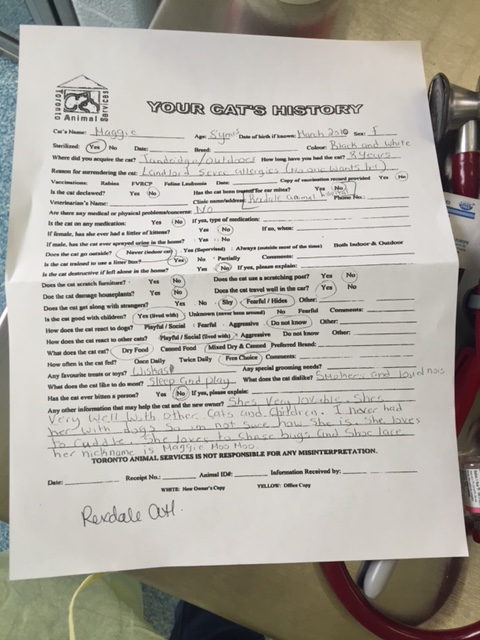 Toronto
Animal
Services
YOUR CAT'S HISTORY
Cat's Name: Maggie Age: 8 years Date of birth if known: March 2010 Sex: F
Sterilized: Yes No Date: Breed: Colour: Black and white
Where did you acquire the cat? /outdoors How long have you had the cat? 8 years
Reason for surrendering the cat: Landlord allergies (No one wants her)
Vaccinations: Rabies FVRCP Feline Leukemia Date: Copy of vaccination record provided Yes No
Is the cat declawed? Yes No Has the cat been treated for ear mites? Yes No
Veterinarian's Name: Clinic name/address: Rexdale animal Phone No.:
Are there any medical or physical problems/concerns: No
Is the cat on any medication: Yes No If yes, type of medication:
If female, has she ever had a litter of kittens? Yes No If so, when:
If male, has the cat ever sprayed urine in the home? Yes No
Does the cat go outside? Never (indoor cat) Yes (Supervised) Always (outside most of the time) Both Indoor & Outdoor
Is the cat trained to use a litter box? Yes No Partially Comments:
Is the cat destructive if left alone in the home? Yes No If yes, please explain:
Does the cat scratch furniture? Yes No Does the cat use a scratching post? Yes No
Doe the cat damage houseplants? Yes No Does the cat travel well in the car? Yes No
Does the cat get along with strangers? Yes No Shy Fearful / Hides Other:
Is the cat good with children? Yes (lived with) Unknown (never been around) No Fearful Comments:
How does the cat react to dogs? Playful / Social Fearful Aggressive Do not know Other:
How does the cat react to other cats? Playful / Social (lived with) Aggressive Do not know Other:
What does the cat eat? Dry Food Canned Food Mixed Dry & Canned Preferred Brand:
How often is the cat fed? Once Daily Twice Daily Free Choice Comments:
Any favourite treats or toys? Wishas Any special grooming needs?
What does the cat like to do most? Sleep and play What does the cat dislike? Smoke, and loud nois
Has the cat ever bitten a person? Yes No If yes, please explain:
Any other information that may help the cat and the new owner? Shes very lovable. She's
very well with other cats and children. I never had
her with dogs so im not sure how she is. She loves
to cuddle. She loves to chase bugs and shoe lace
her nickname is Maggie Moo Moo.
TORONTO ANIMAL SERVICES IS NOT RESPONSIBLE FOR ANY MISINTERPRETATION.
Date: Receipt No.: Animal ID#: Information Received by:
WHITE: New Owner's Copy YELLOW: Office Copy
Rexdale